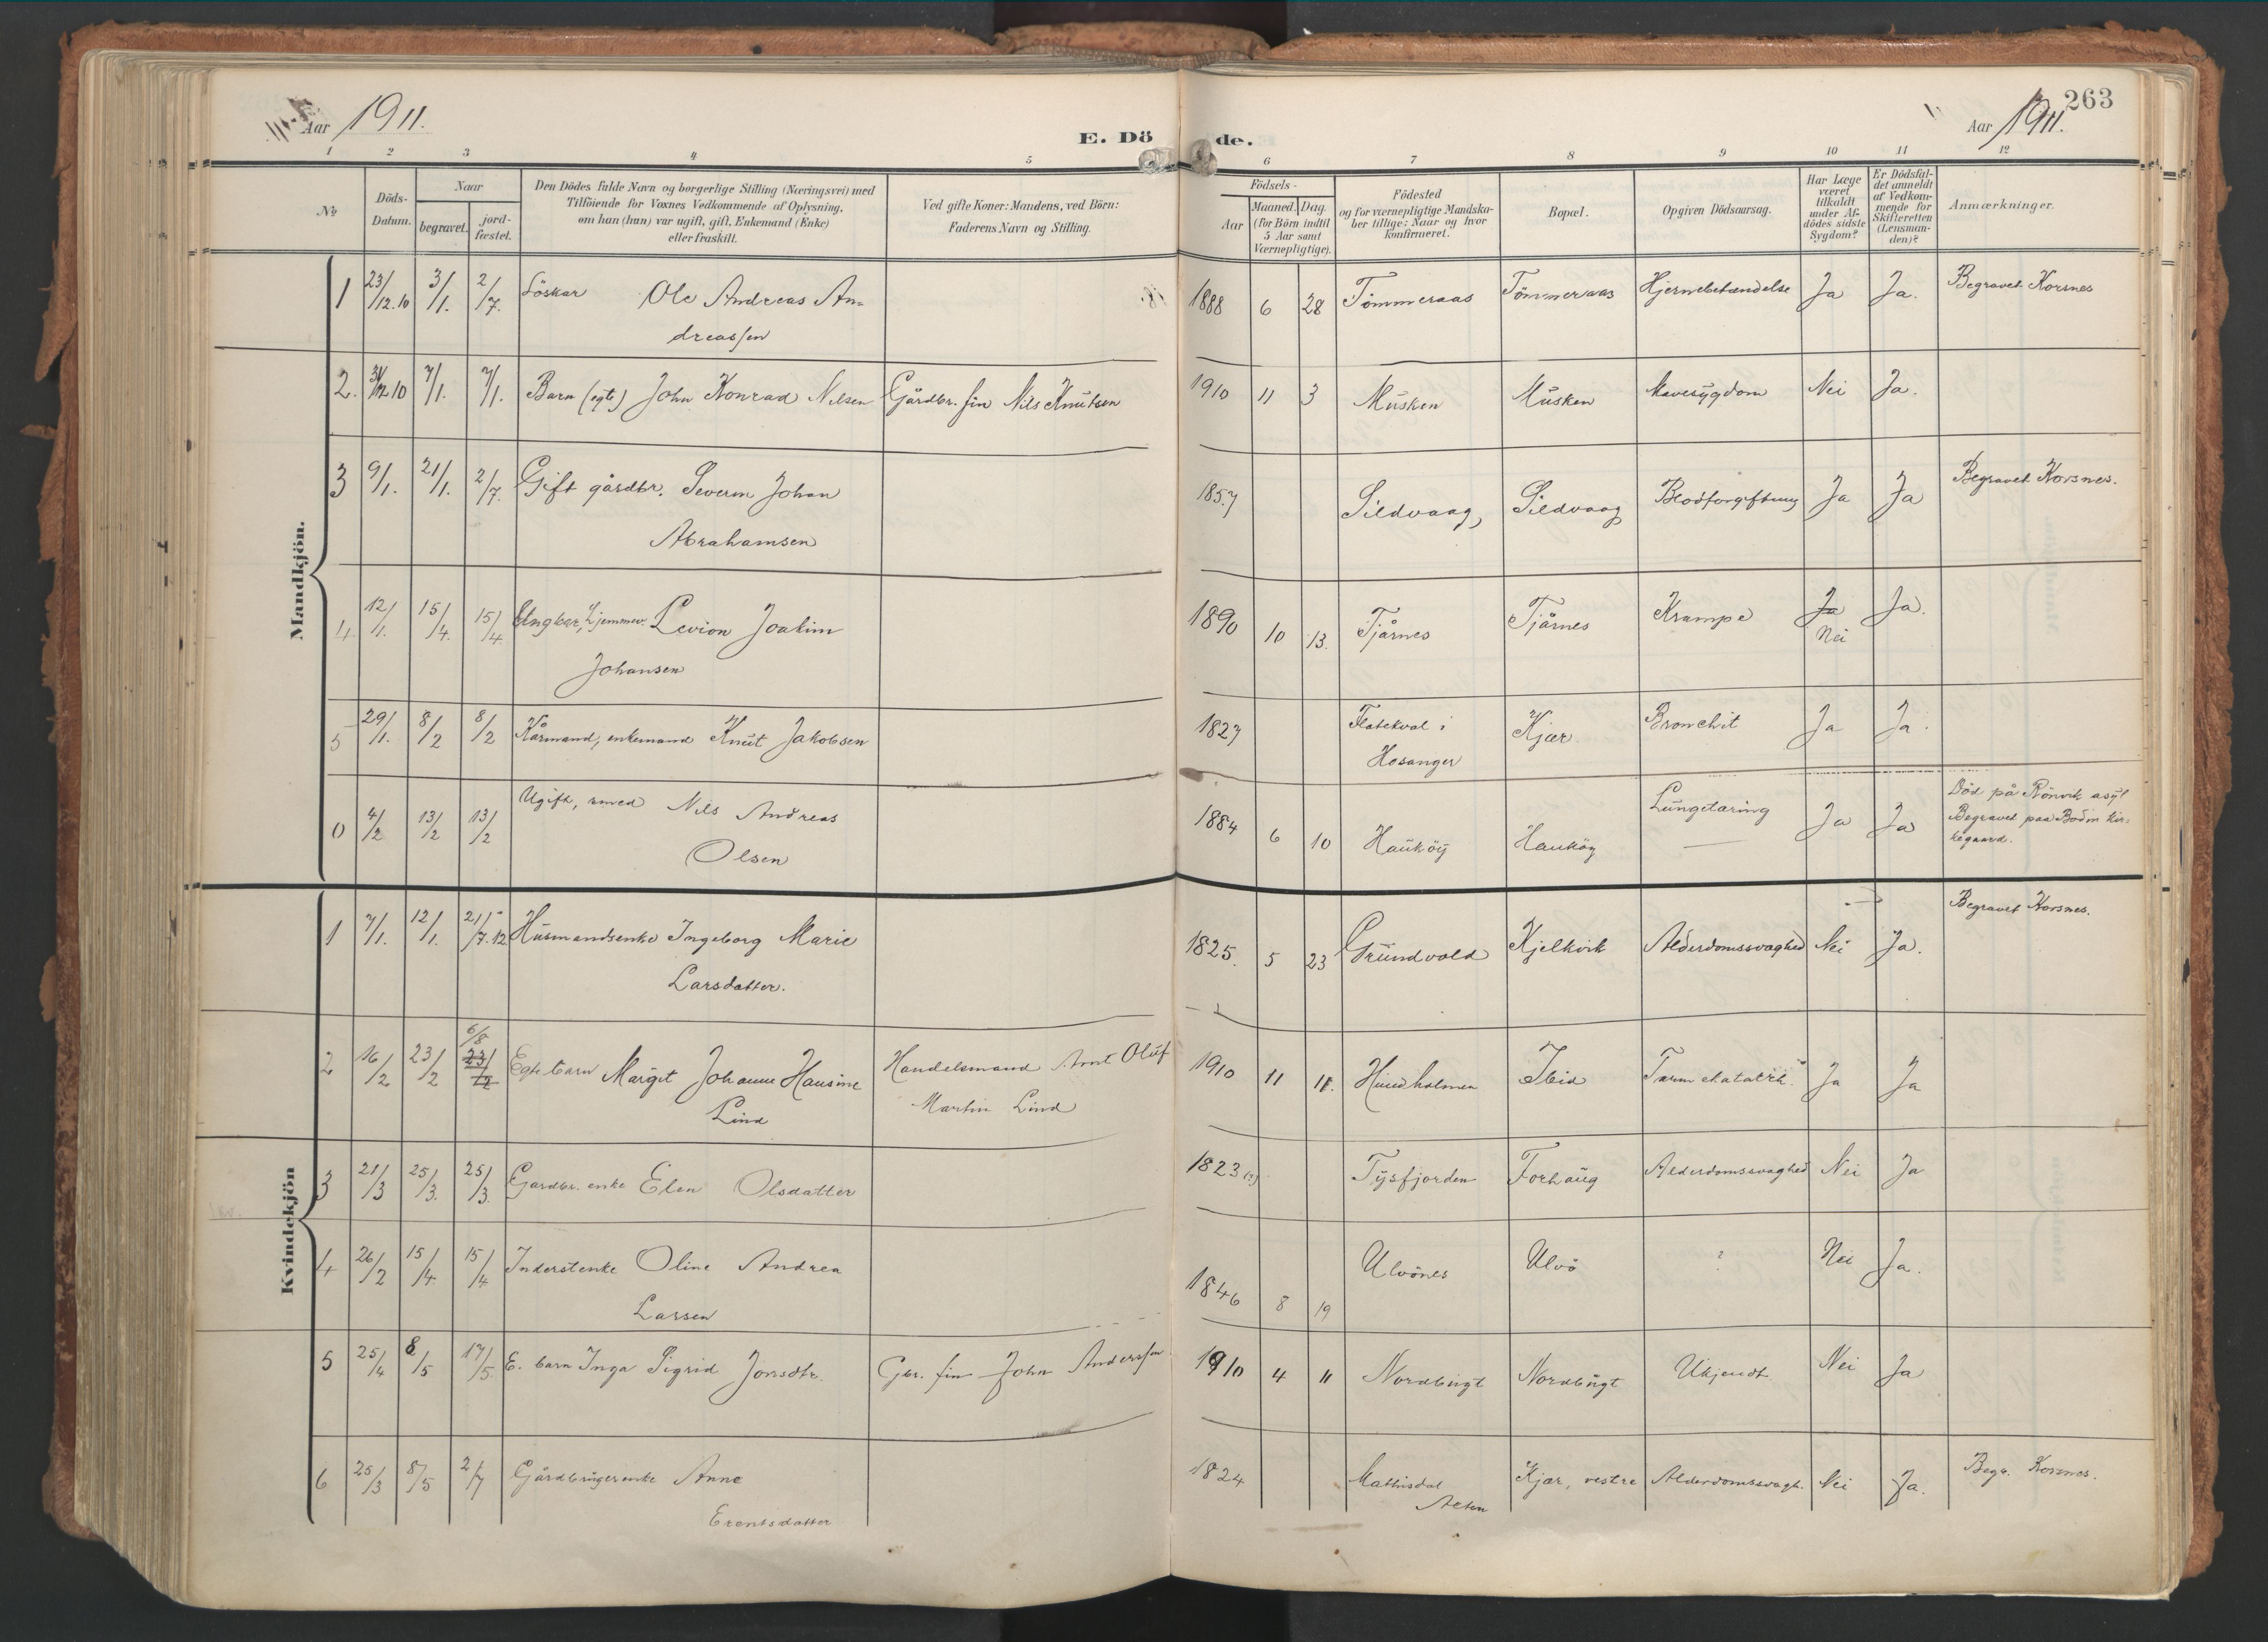 Aar 1911.
E. Döde.
263
Aar 1911.
1 2 3 4 5 6 7 8 9 10 11 12
№
Döds-Datum.
Naar
begravet.
jord-fæstet.
Den Dödes fulde Navn og borgerlige Stilling (Næringsvei) med
Tilföiende for Voxnes Vedkommende af Oplysning,
om han (hun) var ugift, gift, Enkemand (Enke)
eller fraskilt.
Ved gifte Koner: Mandens, ved Börn:
Faderens Navn og Stilling.
Födsels-
Aar
Maaned. Dag.
(for Börn indtil
5 Aar samt
Værnepligtige).
Födested
og for værnepligtige Mandska-
ber tillige: Naar og hvor
konfirmeret.
Bopæl.
Opgiven Dödsaarsag.
Har Læge
været
tilkaldt
under Af-
dödes sidste
Sygdom?
Er Dödsfal-
det anmeldt
af Vedkom-
mende for
Skifteretten
(Lensman-
den)?
Anmærkninger.
Mandkjön.
1 23/12.10 3/1. 2/7. Löskar Ole Andreas An- 1888 6 28 Tömmeraas Tömmeraas Hjernebetændelse Ja Ja. Begravet Korsnes
dreassen
2. 31/12 10 7/1. 7/1. Barn (egte) John Konrad Nilsen Gårdbr. fin Nils Knutsen 1910 11 3 Musken Musken Mavesygdom Nei Ja.
3 9/1. 21/1. 2/7. Gift gårdbr. Severin Johan 1857 Sildvaag, Sildvaag Blodforgiftning Ja Ja Begravet Korsnes.
Abrahamsen
4 12/1. 15/4. 15/4. Ungkar, hjemmev. Levion Joakim 1890 10 13. Tjårnes Tjårnes Krampe Ja Ja.
Nei
Johansen
5 29/1. 8/2 8/2 Kårmand, enkemand Knut Jakobsen 1827 Flatekval i Kjær Bronchit Ja Ja.
Hosanger
0 4/2 13/2 13/2 Ugift, smed Nils Andreas 1884 6 10 Hauköy Hauköy Lungetæring Ja Ja Död på Rönvik asyl
Begravet paa Bodin kir-
kegaard.
Olsen
Kvindekjön
1 7/1. 12/1. 21/7.12 Husmandsenke Ingeborg Marie 1825. 5 23 Grundvold Kjelkvik Alderdomssvaghed Nei Ja. Begravet Korsnes.
Larsdatter.
6/8
2 16/2 23/2 23/2 Egte barn Margit Johanne Hansine Handelsmand Arnt Oluf 1910 11 11. Hundholmen Ibid Tarm chatarrh. Ja Ja
Lind Martin Lind
3 21/3 25/3. 25/3. Gardbr. enke Elen Olsdatter 1823 (?) Tysfjorden Forhaug Alderdomssvaghed Nei Ja
4 26/2 15/4 15/4 Inderstenke Oline Andrea 1846 8 19 Ulvönes Ulvö ? Nei Ja.
Larsen
5 25/4 8/5 17/5. E. barn Inga Sigrid Jonsdtr. Gbr. fin John Anderssen 1910 4 11 Nordbugt Nordbugt Ukjendt. Nei Ja
6 25/3 8/5 2/7 Gårdbrugerenke Anne 1824 Mathisdal Kjær, vestre Alderdomssvagh. Nei Ja. Begr. Korsnes.
Erentsdatter Alten